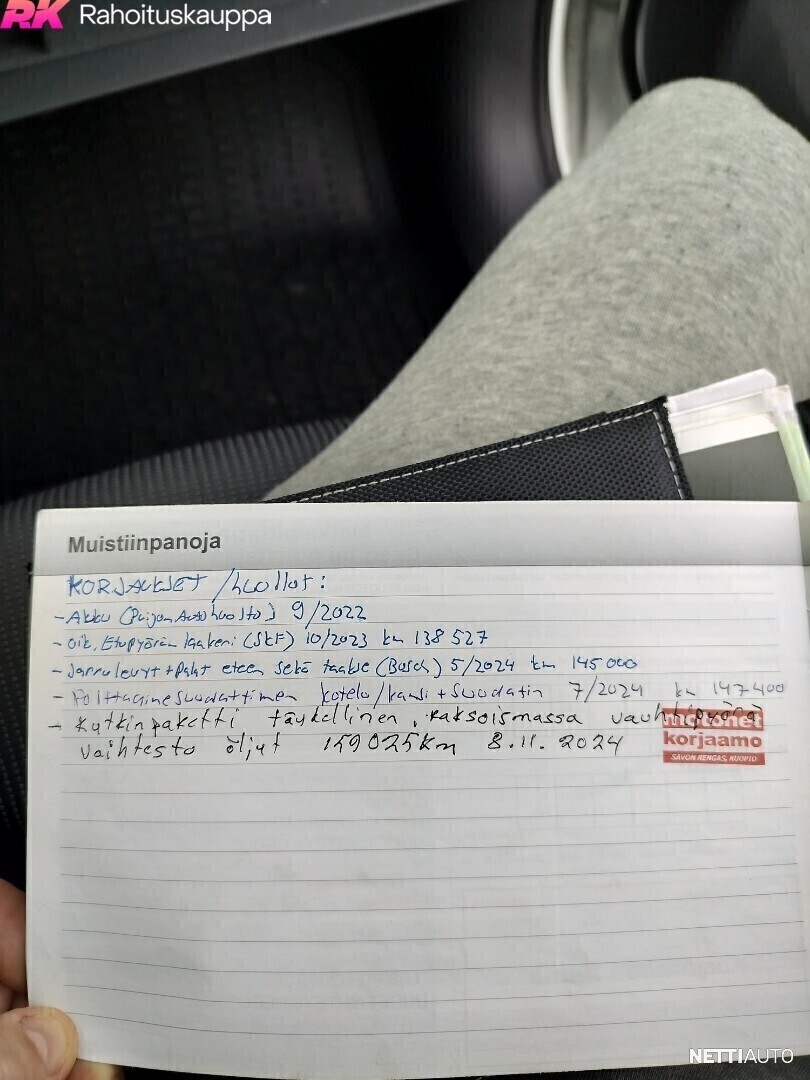 RK Rahoituskauppa
Muistiinpanoja
KORJAUKSET / huollot:
- Akku (Puijon Autohuolto) 9/2022
- Oik. Etupyörän laakeri (SKF) 10/2023 km 138 527
- Jarrulevyt + palat eteen sekä taakse (Bosch) 5/2024 km 145 000
- Polttoainesuodattimen kotelo/kansi + suodatin 7/2024 km 147 400
- Kytkinpaketti täydellinen, kaksoismassa vauhtipyörä
vaihteisto öljyt 159025km 8.11.2024
motonet
korjaamo
SAVON RENGAS, KUOPIO
NETTIAUTO